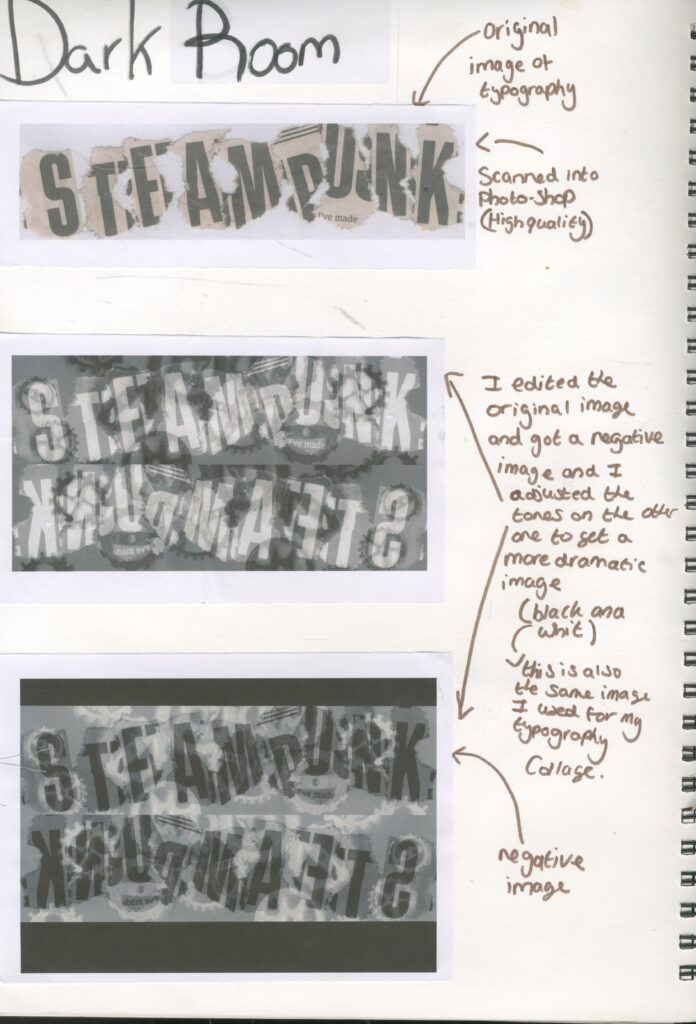 Dark Room
original
image of
typography
STEAMPUNK
i've made
Scanned into
Photo-shop
(High quality)
STEAMPUNK
i've made
STEAMPUNK
i've made
I edited the
original image
and got a negative
image and I
adjusted the
tones on the other
one to get a
more dramatic
image
(black and
whit)
this is also
the same image
I used for my
typography
Collage.
STEAMPUNK
i've made
STEAMPUNK
i've made
negative
image